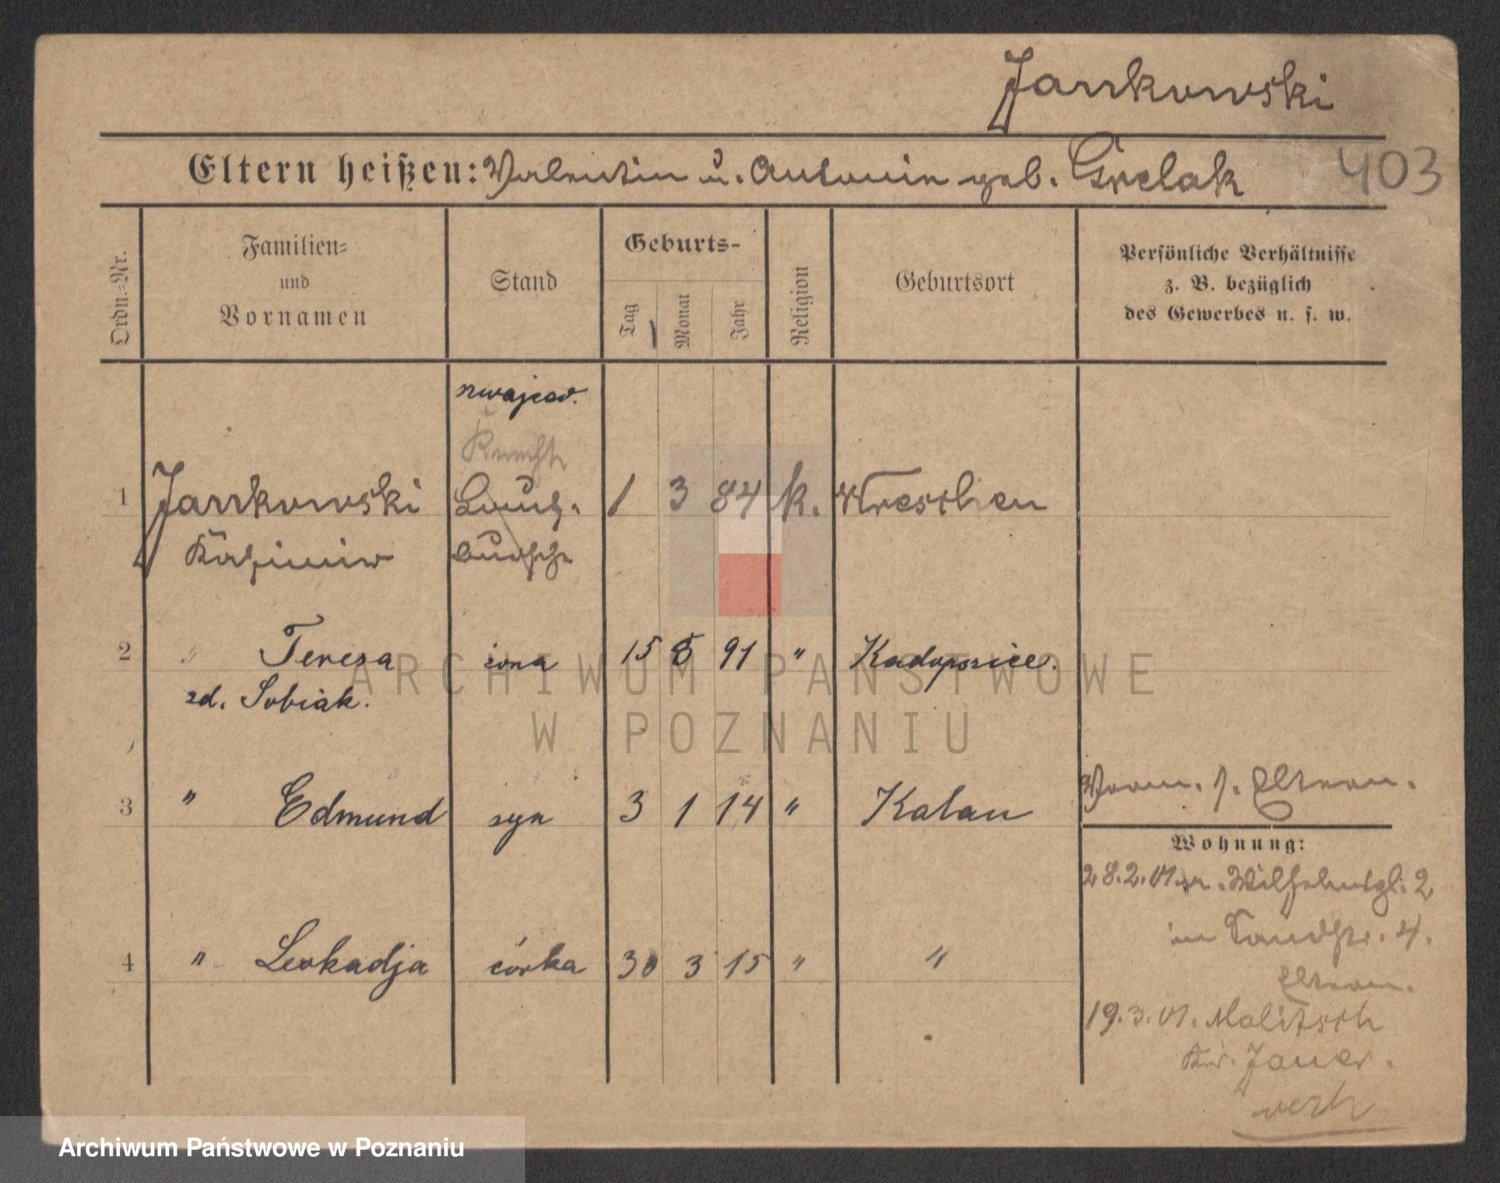 Jankowski
Eltern heißen: Valentin u. Antonie geb. Grelak
403
Ordn.-Nr.
Familien-
und
Vornamen
Stand
Geburts-
Tag
Monat
Jahr
Religion
Geburtsort
Persönliche Verhältnisse
z. B. bezüglich
des Gewerbes u. s. w.
szwajcar.
Knecht
1 Jankowski Lauf- 1 3 84 k. Wreschen
Kasimir bursche
2 " Teresa żona 15 8 91 "
zd. Sobiak.
3 " Edmund syn 3 1 14 " Kalau
Vorm. s. Eltern.
Wohnung:
28.2.01 Wilhelmspl. 2
im Sandstr. 4.
Eltern.
4 " Leokadja córka 30 3 15 " "
19.3.01. Malitsch
Kr. Jauer.
verh
ARCHIWUM PAŃSTWOWE
W POZNANIU
Archiwum Państwowe w Poznaniu